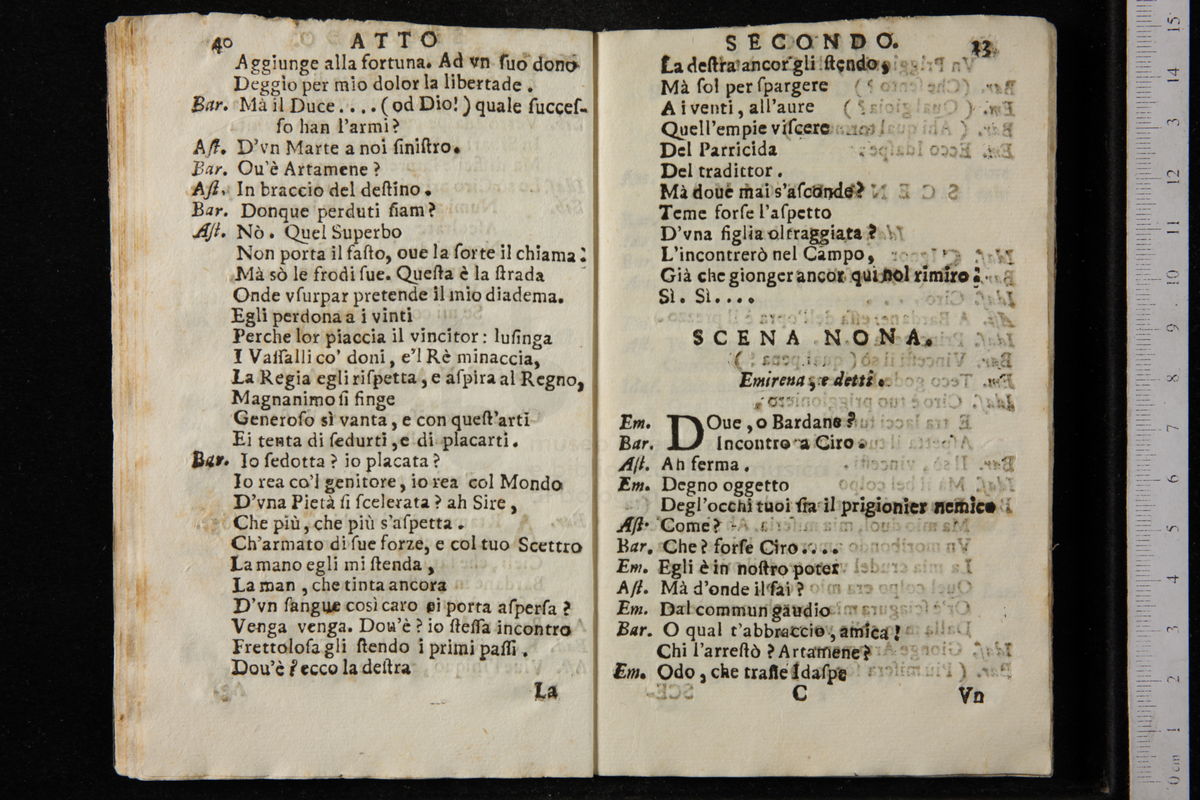 40 ATTO
Aggiunge alla fortuna. Ad vn suo dono
Deggio per mio dolor la libertade.
Bar. Mà il Duce.... (od Dio!) quale succes-
so han l'armi?
Ast. D'vn Marte a noi sinistro.
Bar. Ou'è Artamene?
Ast. In braccio del destino.
Bar. Donque perduti siam?
Ast. Nò. Quel Superbo
Non porta il fasto, oue la sorte il chiama:
Mà sò le frodi sue. Questa è la strada
Onde vsurpar pretende il mio diadema.
Egli perdona a i vinti
Perche lor piaccia il vincitor: lusinga
I Vassalli co' doni, e'l Rè minaccia,
La Regia egli rispetta, e aspira al Regno,
Magnanimo si finge
Generoso sì vanta, e con quest'arti
Ei tenta di sedurti, e di placarti.
Bar. Io sedotta? io placata?
Io rea co'l genitore, io rea col Mondo
D'vna Pietà sì scelerata? ah Sire,
Che più, che più s'aspetta.
Ch'armato di sue forze, e col tuo Scettro
La mano egli mi stenda,
La man, che tinta ancora
D'vn sangue così caro ei porta aspersa?
Venga venga. Dou'è? io stessa incontro
Frettolosa gli stendo i primi passi.
Dou'è? ecco la destra
La
SECONDO. 33
La destra ancor gli stendo,
Mà sol per spargere
A i venti, all'aure
Quell'empie viscere
Del Parricida
Del tradittor.
Mà doue mai s'asconde?
Teme forse l'aspetto
D'vna figlia oltraggiata?
L'incontrerò nel Campo,
Già che gionger ancor qui nol rimiro:
Sì. Sì....
SCENA NONA.
Emirena, e detti.
Em. DOue, o Bardane?
Bar. Incontro a Ciro.
Ast. Ah ferma.
Em. Degno oggetto
Degl'occhi tuoi sia il prigionier nemico
Ast. Come?
Bar. Che? forse Ciro....
Em. Egli è in nostro poter
Ast. Mà d'onde il sai?
Em. Dal commun gaudio
Bar. O qual t'abbraccio, amica!
Chi l'arrestò? Artamene?
Em. Odo, che trasse Idaspe
C Vn